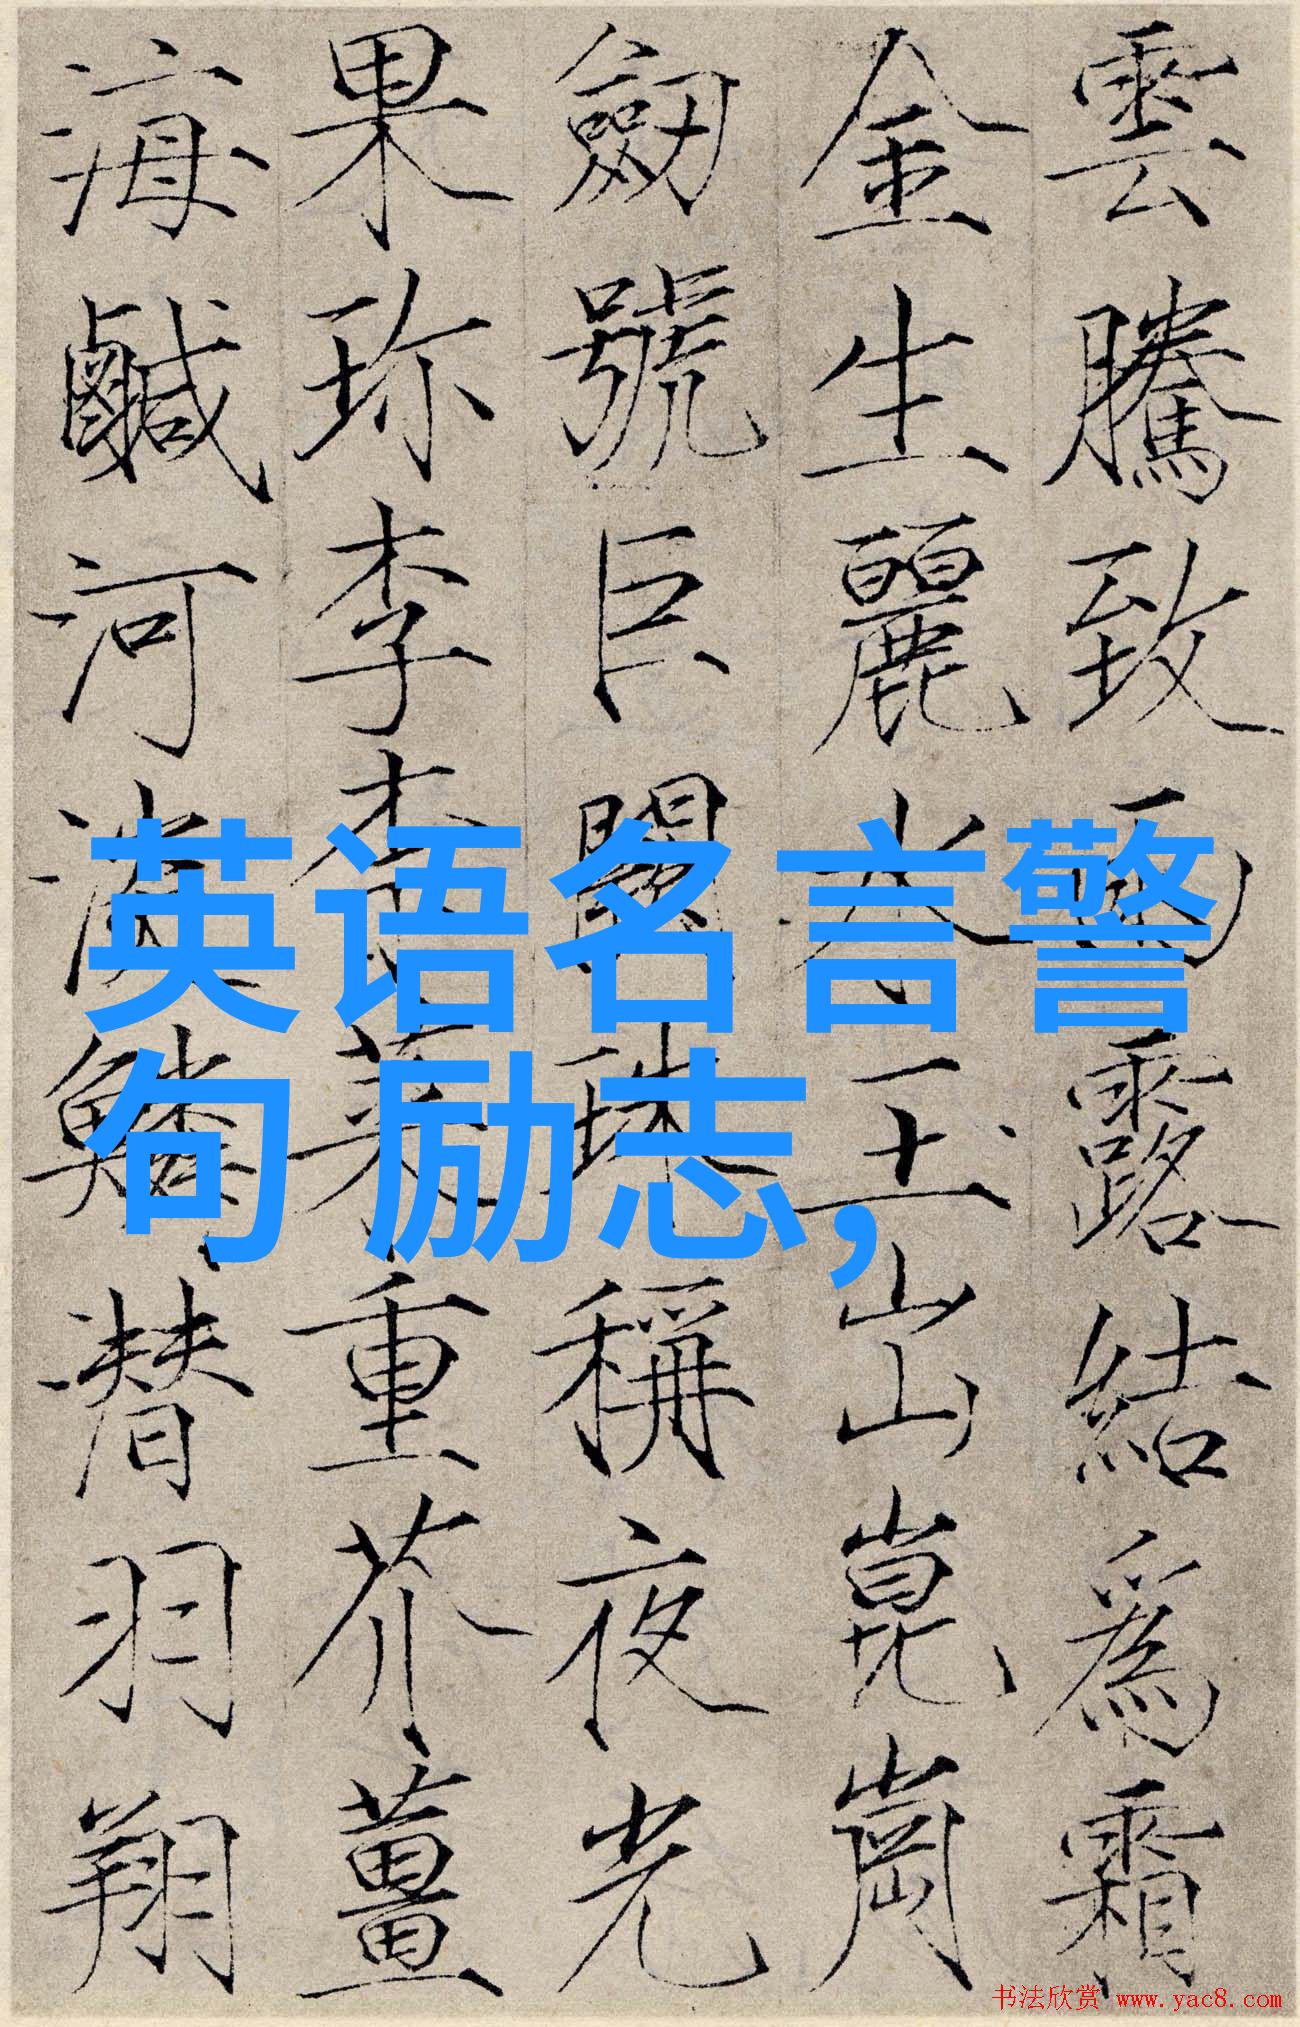 雲騰致雨露結爲霜
金生麗水玉出崑崗
劒號巨闕珠稱夜光
果珎李柰菜重芥薑
海鹹河淡鱗潜羽翔
英语名言警
句 励志,
书法欣赏 www.yac8.com